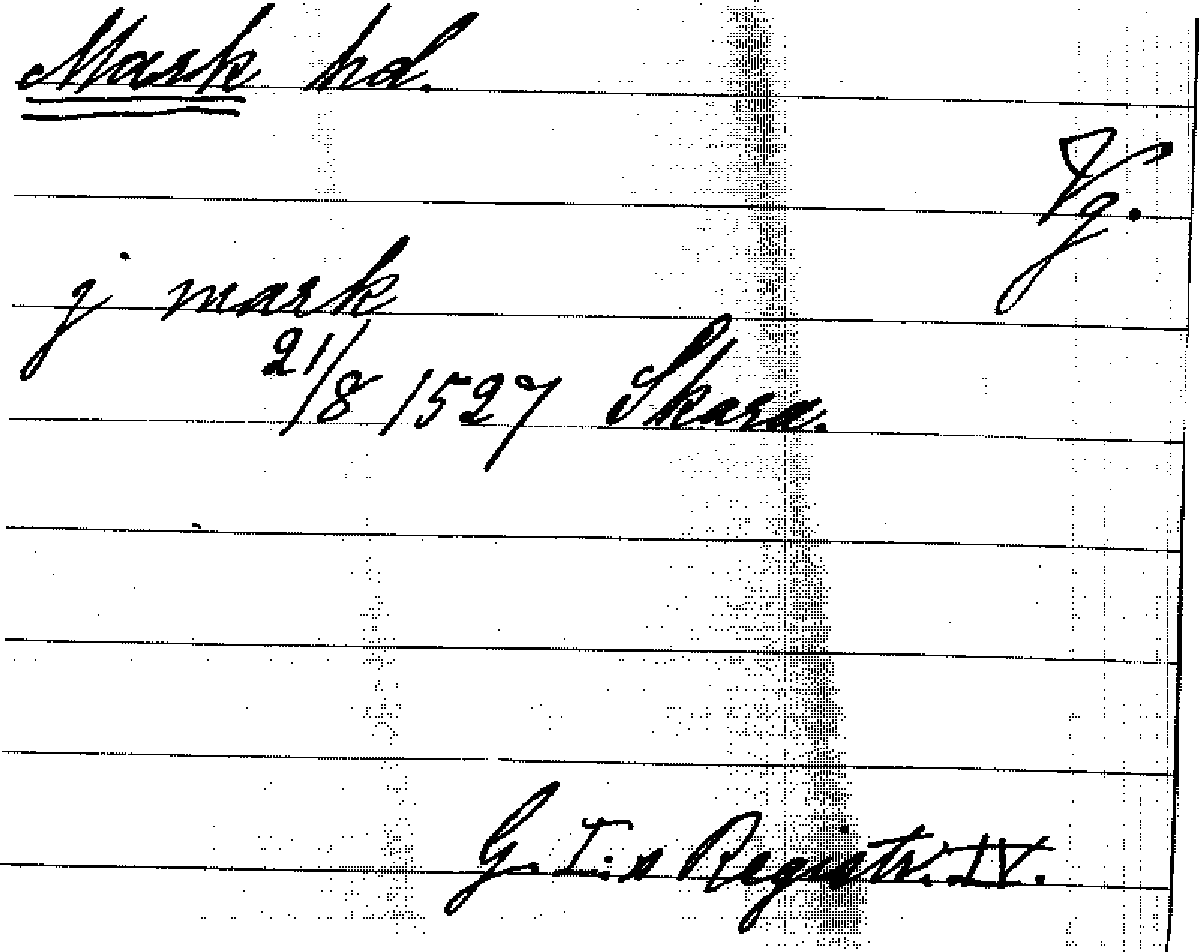 Mark hd.
Vg.
j mark
21/8 1527 Skara.
G. I:s Registr. IV.